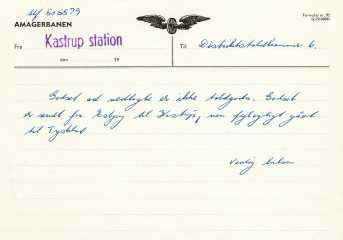 tlf 505579
AMAGERBANEN
Formular nr. 70
Fra
Kastrup station
Til
Distriktstoldkammer 6.
den
19
Godset ad vedlagte er ikke toldgods. Godset
er sendt fra Esbjerg til Kastrup, men fejlagtigt gået
til Tyskland
Venlig hilsen